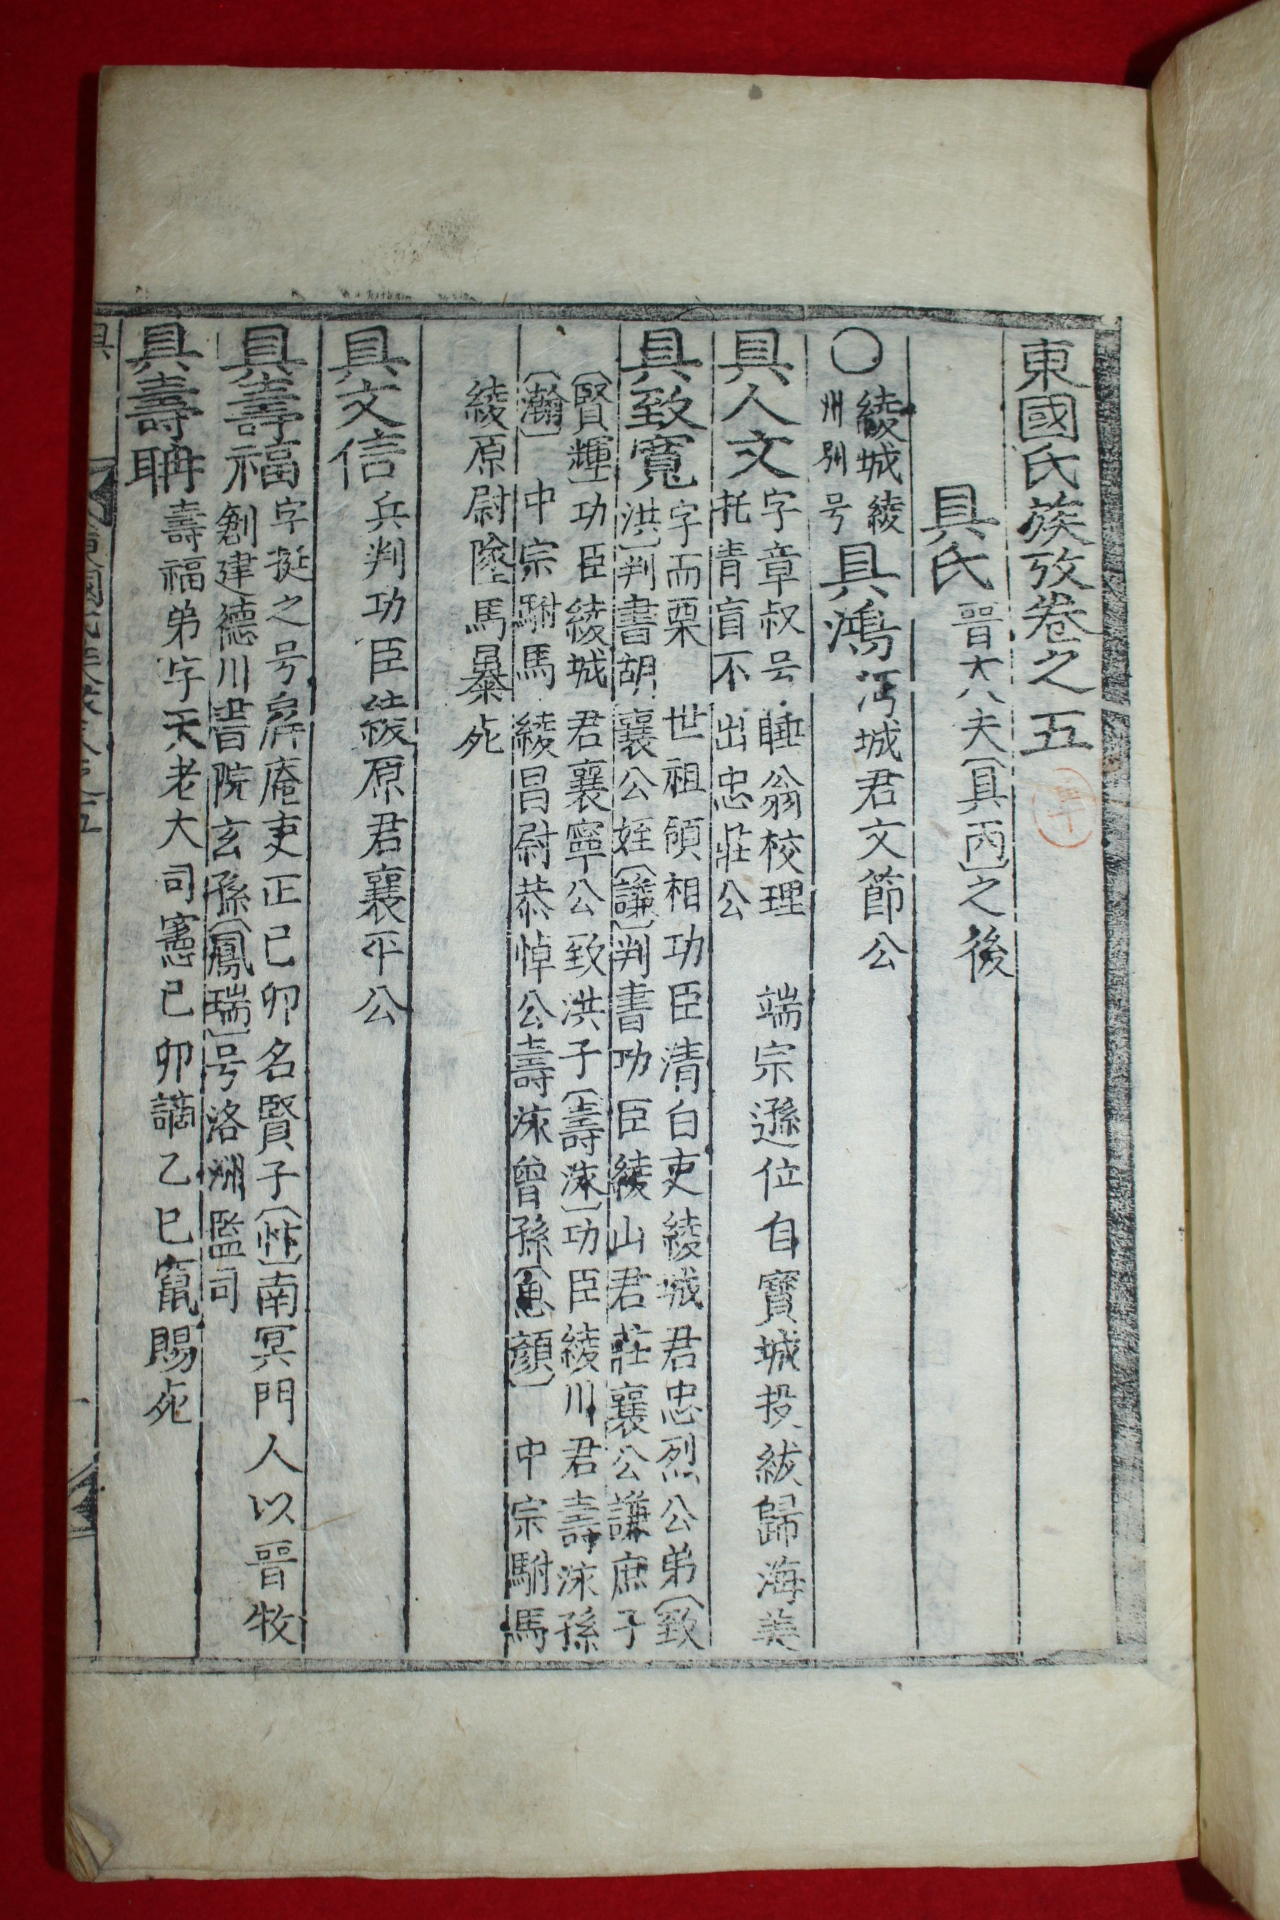 東國氏族攷卷之五
具氏 晋大夫[具丙]之後
○ 綾城綾
州別号
具鴻 沔城君文節公
具人文 字章叔号睡翁校理 端宗遜位自寶城投紱歸海美
托青盲不出忠莊公
具致寬 字而栗 世祖領相功臣清白吏綾城君忠烈公弟[致
洪]判書胡襄公姪[謙]判書功臣綾山君莊襄公謙庶子
[賢輝]功臣綾城君襄寧公致洪子[壽泳]功臣綾川君壽泳孫
[瀚] 中宗駙馬綾昌尉恭悼公壽泳曾孫[思顔] 中宗駙馬
綾原尉墜馬暴死
具文信 兵判功臣綾原君襄平公
具壽福 字挺之号屏庵吏正己卯名賢子[]南冥門人以晋牧
創建德川書院玄孫[鳳瑞]号洛洲監司
具壽聃 壽福弟字天老大司憲己卯謫乙巳竄賜死
具
東國氏族攷卷之五
一